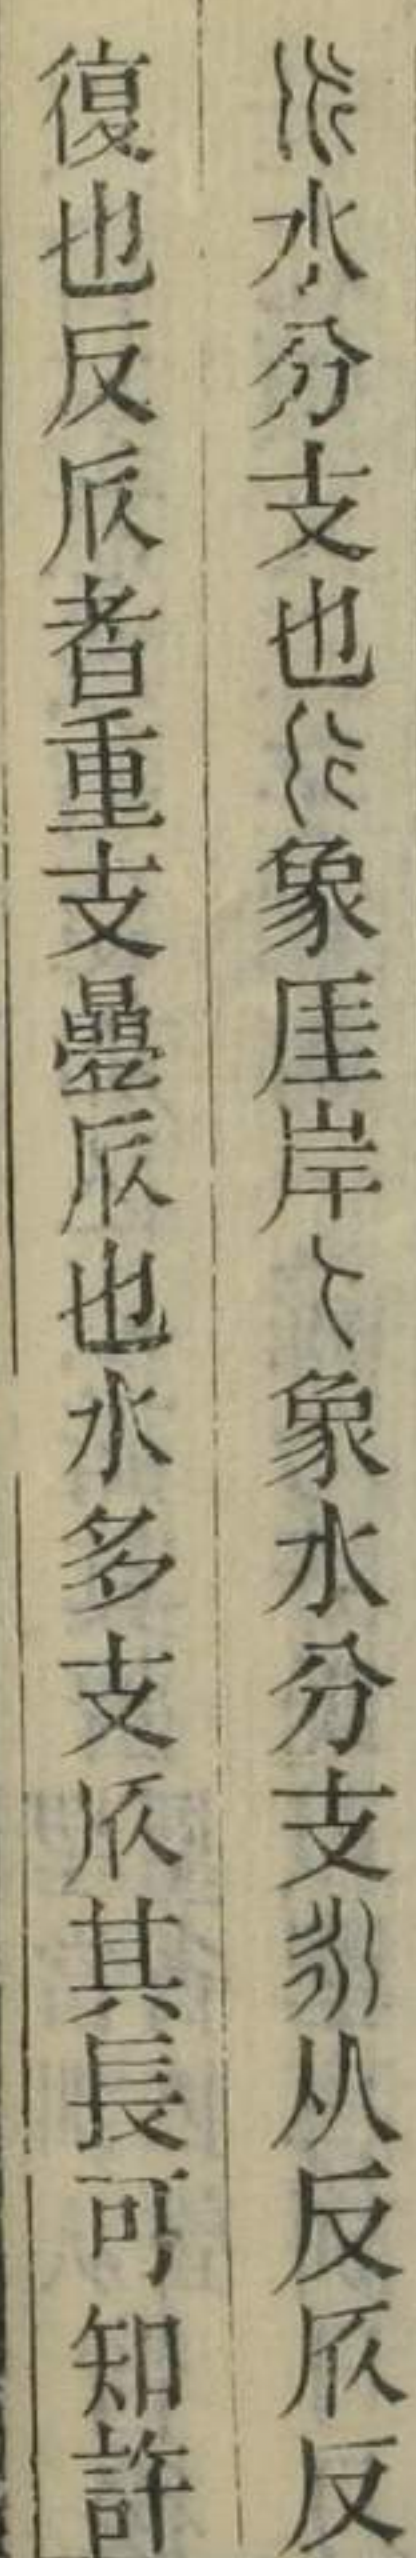 𠂢水分支也象厓岸象水分支永从反𠂢反
復也反𠂢者重支疊𠂢也水多支𠂢其長可知許